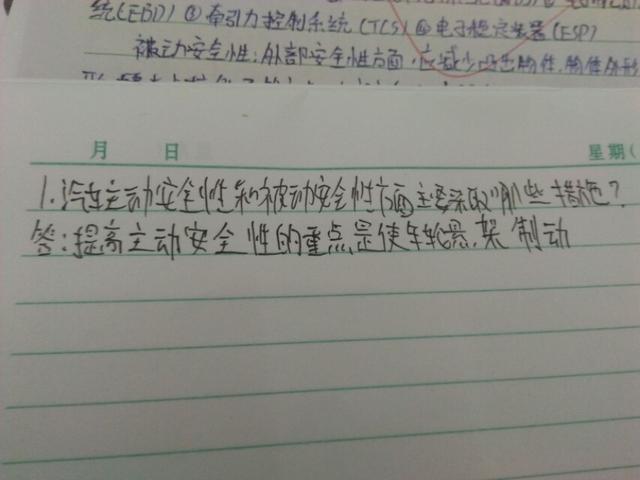 统(EBD) ③牵引力控制系统(TCS) ④电子稳定装置(ESP)
被动安全性:外部安全性方面,应减少凸出物件,物体外形
月 日 星期(
1.汽车主动安全性和被动安全性方面主要采取哪些措施?
答:提高主动安全性的重点是使车轮悬架制动